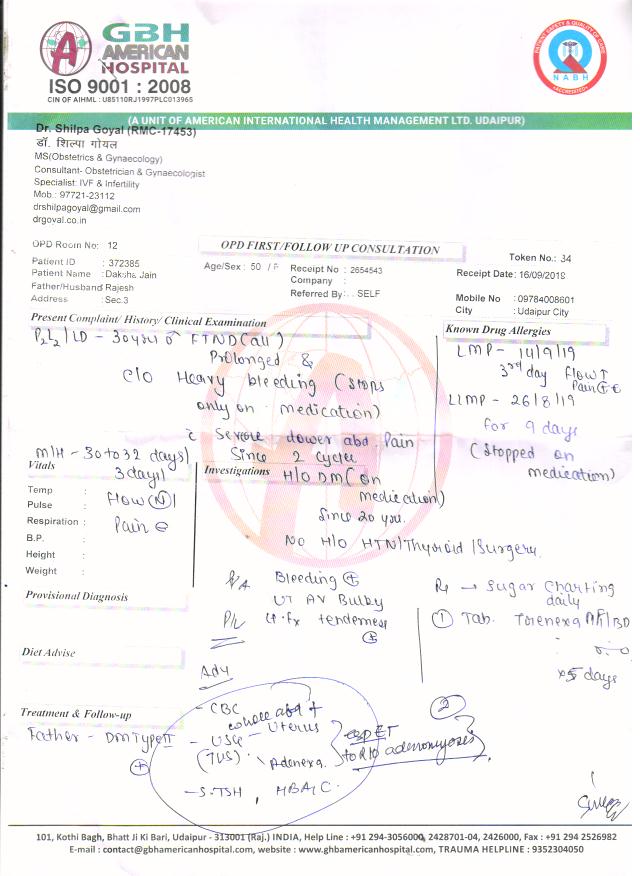 GBH
AMERICAN
HOSPITAL
ISO 9001 : 2008
CIN OF AIHML : U85110RJ1997PLC013965
PATIENT SAFETY & QUALITY OF CARE
NABH
ACCREDITED
(A UNIT OF AMERICAN INTERNATIONAL HEALTH MANAGEMENT LTD. UDAIPUR)
Dr. Shilpa Goyal (RMC-17453)
डॉ. शिल्पा गोयल
MS(Obstetrics & Gynaecology)
Consultant- Obstetrician & Gynaecologist
Specialist: IVF & Infertility
Mob.: 97721-23112
drshilpagoyal@gmail.com
drgoyal.co.in
OPD Room No: 12
OPD FIRST/FOLLOW UP CONSULTATION
Token No.: 34
Patient ID : 372385
Age/Sex : 50 / F
Receipt No : 2654543
Receipt Date: 16/09/2019
Patient Name : Daksha Jain
Company :
Father/Husband Rajesh
Referred By: . SELF
Mobile No : 09784008601
Address : Sec.3
City : Udaipur City
Present Complaint/ History/ Clinical Examination
Known Drug Allergies
P2L2 / LD - 30 yrs FTND (all)
LMP - 14/9/19
Prolonged &
3rd day flow↑
Pain ⊕
C/o Heavy bleeding (stops
only on medication)
LLMP - 26/8/19
for 9 days
c̄ Severe lower abd. Pain
Since 2 cycles
(Stopped on
medication)
M/H - 30 to 32 days/
3 days/
Flow (N)/
Pain ⊖
Vitals
Temp :
Pulse :
Respiration :
B.P. :
Height :
Weight :
Investigations
H/O DM (on
medication)
since 20 yrs.
No H/O HTN/Thyroid/Surgery.
P/A Bleeding ⊕
UT AV Bulky
P/V Lt. Fx tenderness
⊕
Rx → Sugar Charting
daily
① Tab. Torenexa MF/BD
x 5 days
Provisional Diagnosis
Diet Advise
Adv
Treatment & Follow-up
Father - DM Type II
⊕
- CBC
whole abd +
- USG - Uterus
(TVS) Adenexa.
to R/o adenomyosis
②
- S. TSH, HBA1C.
101, Kothi Bagh, Bhatt Ji Ki Bari, Udaipur - 313001 (Raj.) INDIA, Help Line : +91 294-3056000, 2428701-04, 2426000, Fax : +91 294 2526982
E-mail : contact@gbhamericanhospital.com, website : www.gbhamericanhospital.com, TRAUMA HELPLINE : 9352304050